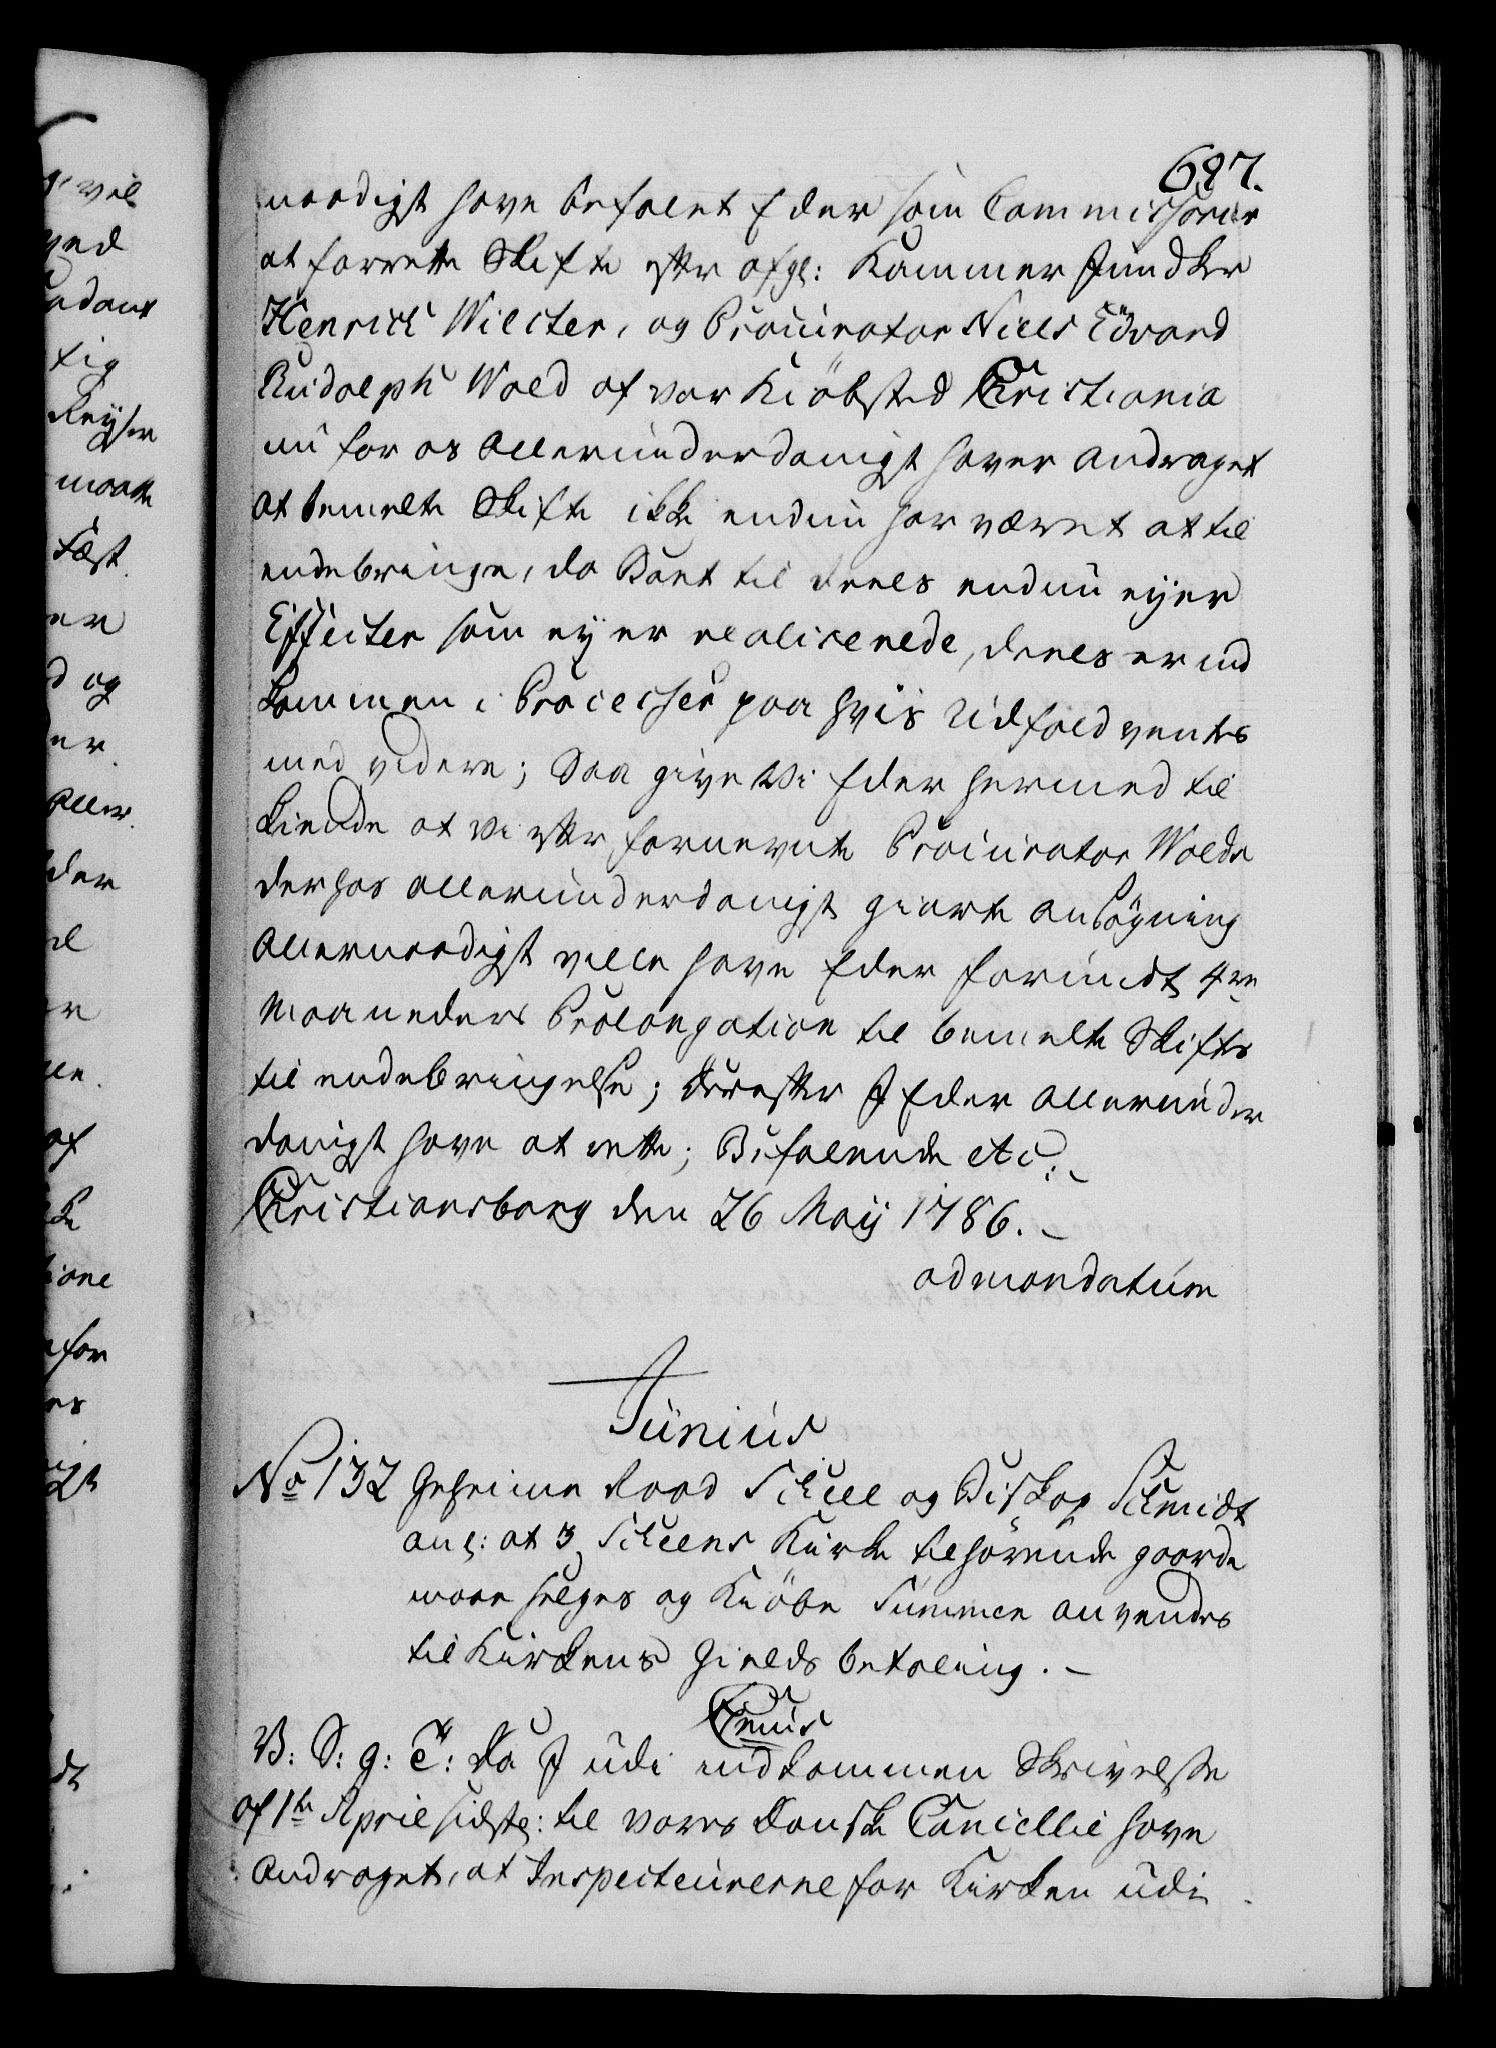 687.
naadigst have befalet Eder som Commissarier
at forrette Skifte efter afg: Kammer Junker
Henrich Wilster, og Procurator Niels Edvard
Rudolph Wold af vor Kiöbsted Christiania
nu for os allerunderdanigst haver andraget
at bemelte Skifte ikke endnu har været at til
endebringe, da Boet til deels endnu eyer
Effecter som ey er realiserede, deels er ind
kommen i Processer paa hvis Udfald ventes
med videre; Saa give Vi Eder hermed til
kiende at vi efter fornevnte Procurator Wolds
derhos allerunderdanigst giorte ansögning
allernaadigst ville have Eder forundt 4re
Maaneders Prolongation til bemelte Skiftes
til endebringelse; Derefter I Eder allerunder
danigst have at rette; Befalende etc:
Christiansborg den 26 Maij 1786.
ad mandatum
Junius
No 132 Geheime Raad Scheel og Biskop Schmidt
anl: at 3 Scheens Kirke tilhörende gaarde
maae selges og Kiöbe Summen anvendes
til Kirkens Gields betaling.
Chr: VII
V: S: g: T: Da I udi indkommen Skrivelse
af 1te April sidstl: til vores Danske Cancellie have
andraget, at Inspecteurerne for Kirken udi